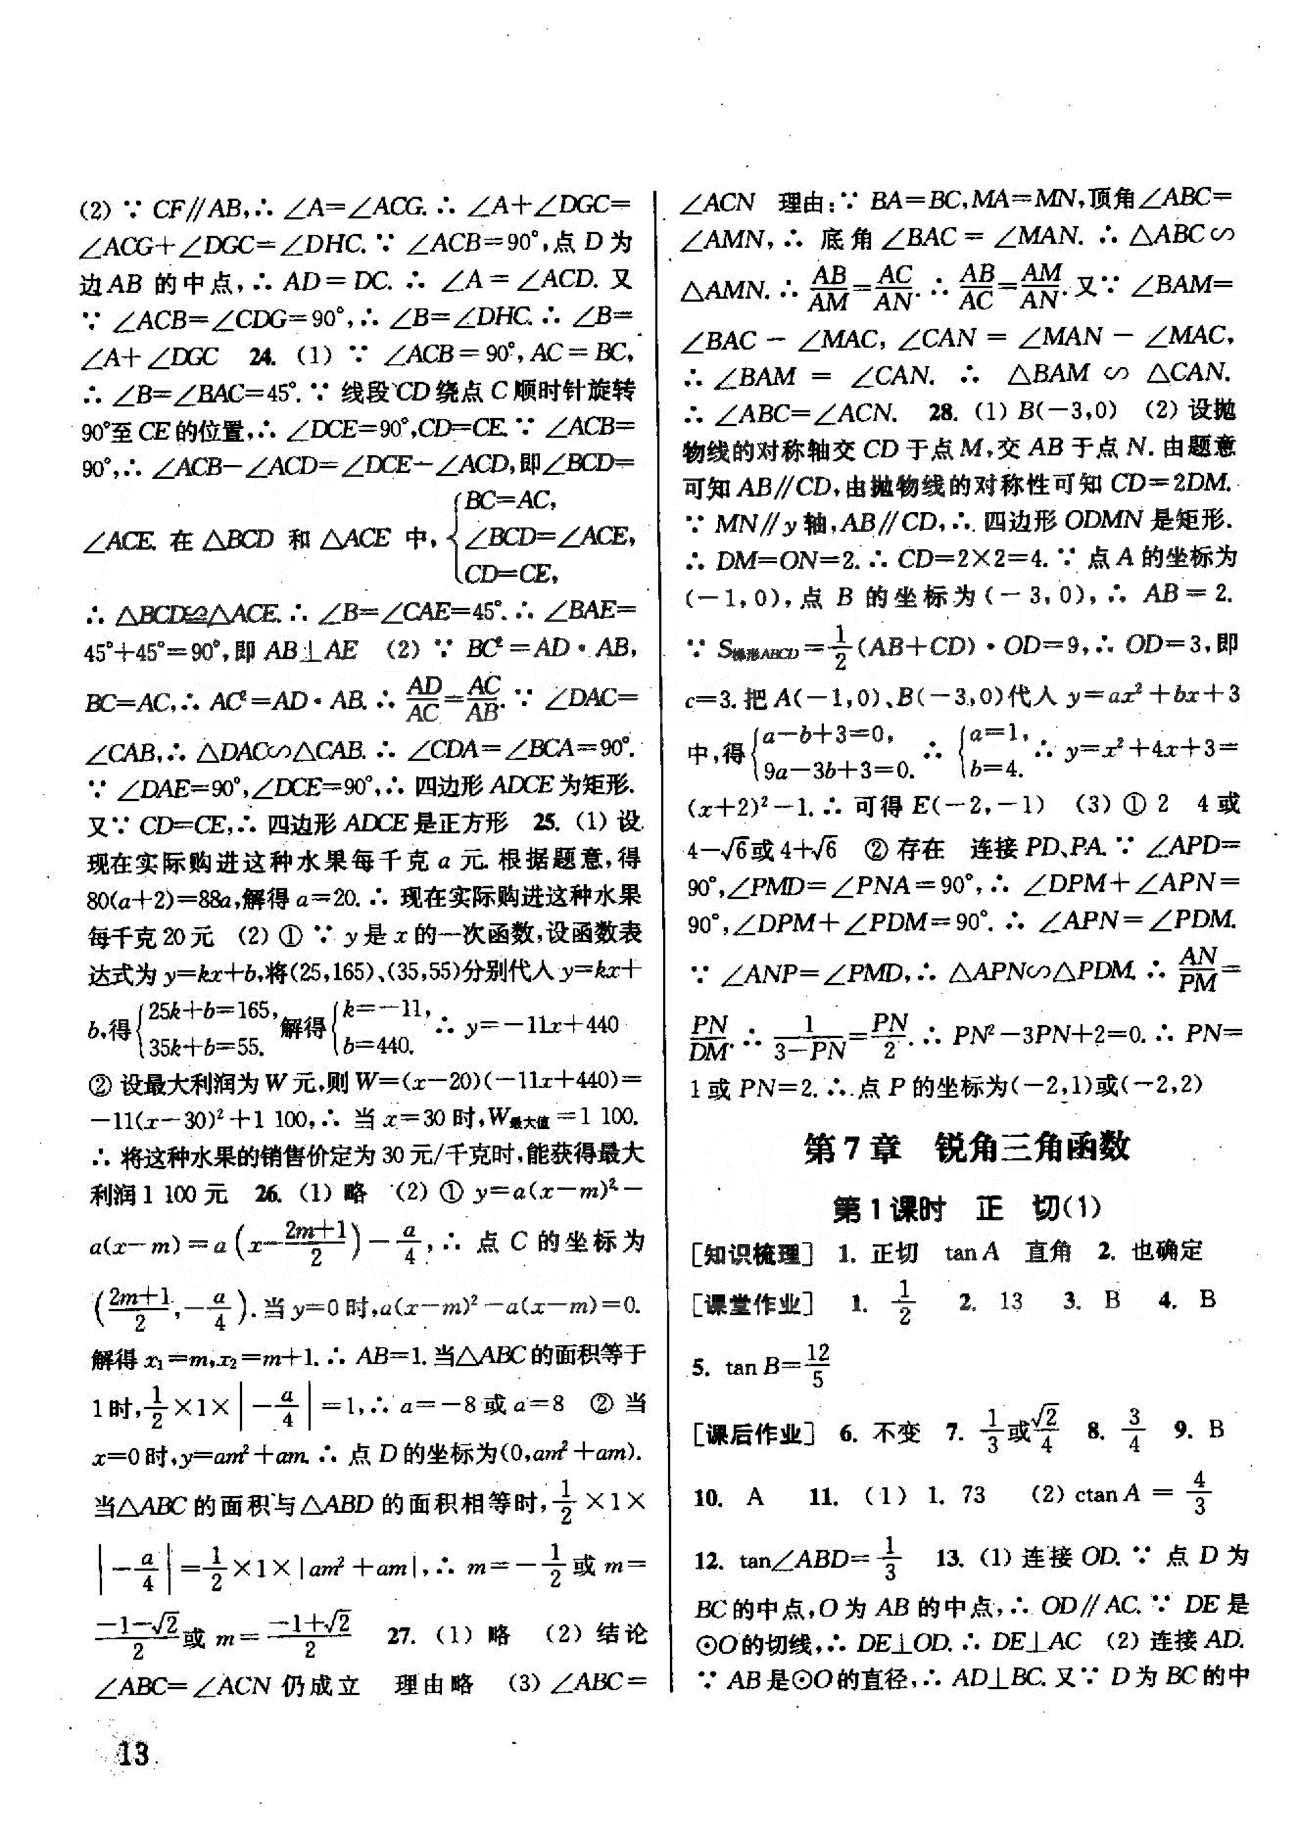 (2) ∵ CF∥AB,∴ ∠A=∠ACG. ∴ ∠A+∠DGC=
∠ACG+∠DGC=∠DHC. ∵ ∠ACB=90°,点 D 为
边 AB 的中点,∴ AD=DC. ∴ ∠A=∠ACD. 又
∵ ∠ACB=∠CDG=90°,∴ ∠B=∠DHC. ∴ ∠B=
∠A+∠DGC 24. (1) ∵ ∠ACB=90°,AC=BC,
∴ ∠B=∠BAC=45°. ∵ 线段 CD 绕点 C 顺时针旋转
90°至 CE 的位置,∴ ∠DCE=90°,CD=CE. ∵ ∠ACB=
90°,∴ ∠ACB-∠ACD=∠DCE-∠ACD,即∠BCD=
∠ACE. 在 △BCD 和 △ACE 中,{BC=AC, ∠BCD=∠ACE, CD=CE,
∴ △BCD≌△ACE. ∴ ∠B=∠CAE=45°. ∴ ∠BAE=
45°+45°=90°,即 AB⊥AE (2) ∵ BC²=AD·AB,
BC=AC,∴ AC²=AD·AB. ∴ AD/AC=AC/AB. ∵ ∠DAC=
∠CAB,∴ △DAC∽△CAB. ∴ ∠CDA=∠BCA=90°.
∵ ∠DAE=90°,∠DCE=90°,∴ 四边形 ADCE 为矩形.
又∵ CD=CE,∴ 四边形 ADCE 是正方形 25. (1) 设
现在实际购进这种水果每千克 a 元. 根据题意,得
80(a+2)=88a,解得 a=20. ∴ 现在实际购进这种水果
每千克 20 元 (2) ① ∵ y 是 x 的一次函数,设函数表
达式为 y=kx+b,将(25,165)、(35,55)分别代人 y=kx+
b,得{25k+b=165, 35k+b=55. 解得{k=-11, b=440. ∴ y=-11x+440
② 设最大利润为 W 元,则 W=(x-20)(-11x+440)=
-11(x-30)²+1 100,∴ 当 x=30 时,W最大值=1 100.
∴ 将这种水果的销售价定为 30 元/千克时,能获得最大
利润 1 100 元 26. (1) 略 (2) ① y=a(x-m)²-
a(x-m)=a(x-(2m+1)/2)-a/4,∴ 点 C 的坐标为
((2m+1)/2,-a/4). 当 y=0 时,a(x-m)²-a(x-m)=0.
解得 x₁=m,x₂=m+1. ∴ AB=1. 当△ABC 的面积等于
1 时,1/2×1×|-a/4|=1,∴ a=-8 或 a=8 ② 当
x=0 时,y=am²+am. ∴ 点 D 的坐标为(0,am²+am).
当△ABC 的面积与△ABD 的面积相等时,1/2×1×
|-a/4|=1/2×1×|am²+am|,∴ m=-1/2 或 m=
(-1-√2)/2 或 m=(-1+√2)/2 27. (1) 略 (2) 结论
∠ABC=∠ACN 仍成立 理由略 (3) ∠ABC=
∠ACN 理由:∵ BA=BC,MA=MN,顶角∠ABC=
∠AMN,∴ 底角∠BAC=∠MAN. ∴ △ABC∽
△AMN. ∴ AB/AM=AC/AN. ∴ AB/AC=AM/AN. 又∵ ∠BAM=
∠BAC-∠MAC,∠CAN=∠MAN-∠MAC,
∴ ∠BAM=∠CAN. ∴ △BAM∽△CAN.
∴ ∠ABC=∠ACN. 28. (1) B(-3,0) (2) 设抛
物线的对称轴交 CD 于点 M,交 AB 于点 N. 由题意
可知 AB∥CD,由抛物线的对称性可知 CD=2DM.
∵ MN∥y 轴,AB∥CD,∴ 四边形 ODMN 是矩形.
∴ DM=ON=2. ∴ CD=2×2=4. ∵ 点 A 的坐标为
(-1,0),点 B 的坐标为(-3,0),∴ AB=2.
∵ S梯形ABCD=1/2(AB+CD)·OD=9,∴ OD=3,即
c=3. 把 A(-1,0)、B(-3,0)代人 y=ax²+bx+3
中,得{a-b+3=0, 9a-3b+3=0. ∴ {a=1, b=4. ∴ y=x²+4x+3=
(x+2)²-1. ∴ 可得 E(-2,-1) (3) ① 2 4 或
4-√6或 4+√6 ② 存在 连接 PD、PA. ∵ ∠APD=
90°,∠PMD=∠PNA=90°,∴ ∠DPM+∠APN=
90°,∠DPM+∠PDM=90°. ∴ ∠APN=∠PDM.
∵ ∠ANP=∠PMD,∴ △APN∽△PDM. ∴ AN/PM=
PN/DM. ∴ 1/(3-PN)=PN/2. ∴ PN²-3PN+2=0. ∴ PN=
1 或 PN=2. ∴ 点 P 的坐标为(-2,1)或(-2,2)
第 7 章 锐角三角函数
第 1 课时 正 切(1)
[知识梳理] 1. 正切 tan A 直角 2. 也确定
[课堂作业] 1. 1/2 2. 13 3. B 4. B
5. tan B=12/5
[课后作业] 6. 不变 7. 1/3或√2/4 8. 3/4 9. B
10. A 11. (1) 1. 73 (2) ctan A=4/3
12. tan∠ABD=1/3 13. (1) 连接 OD. ∵ 点 D 为
BC 的中点,O 为 AB 的中点,∴ OD∥AC. ∵ DE 是
⊙O 的切线,∴ DE⊥OD. ∴ DE⊥AC (2) 连接 AD.
∵ AB 是⊙O 的直径,∴ AD⊥BC. 又∵ D 为 BC 的中
13